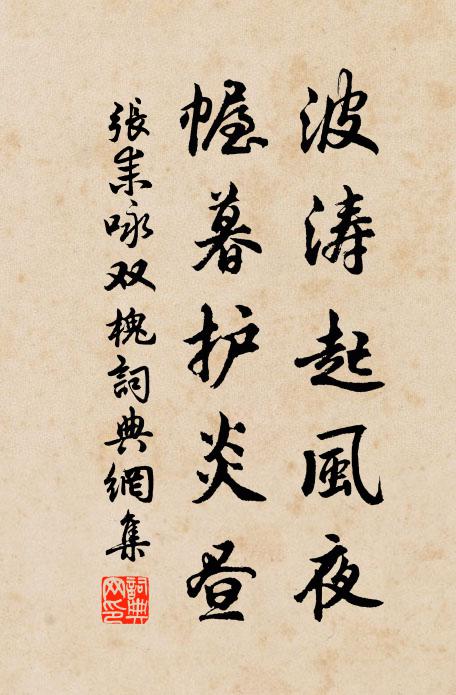 波涛起風夜
幄暮护炎昼
張耒咏双槐詞典網集
詞典网印